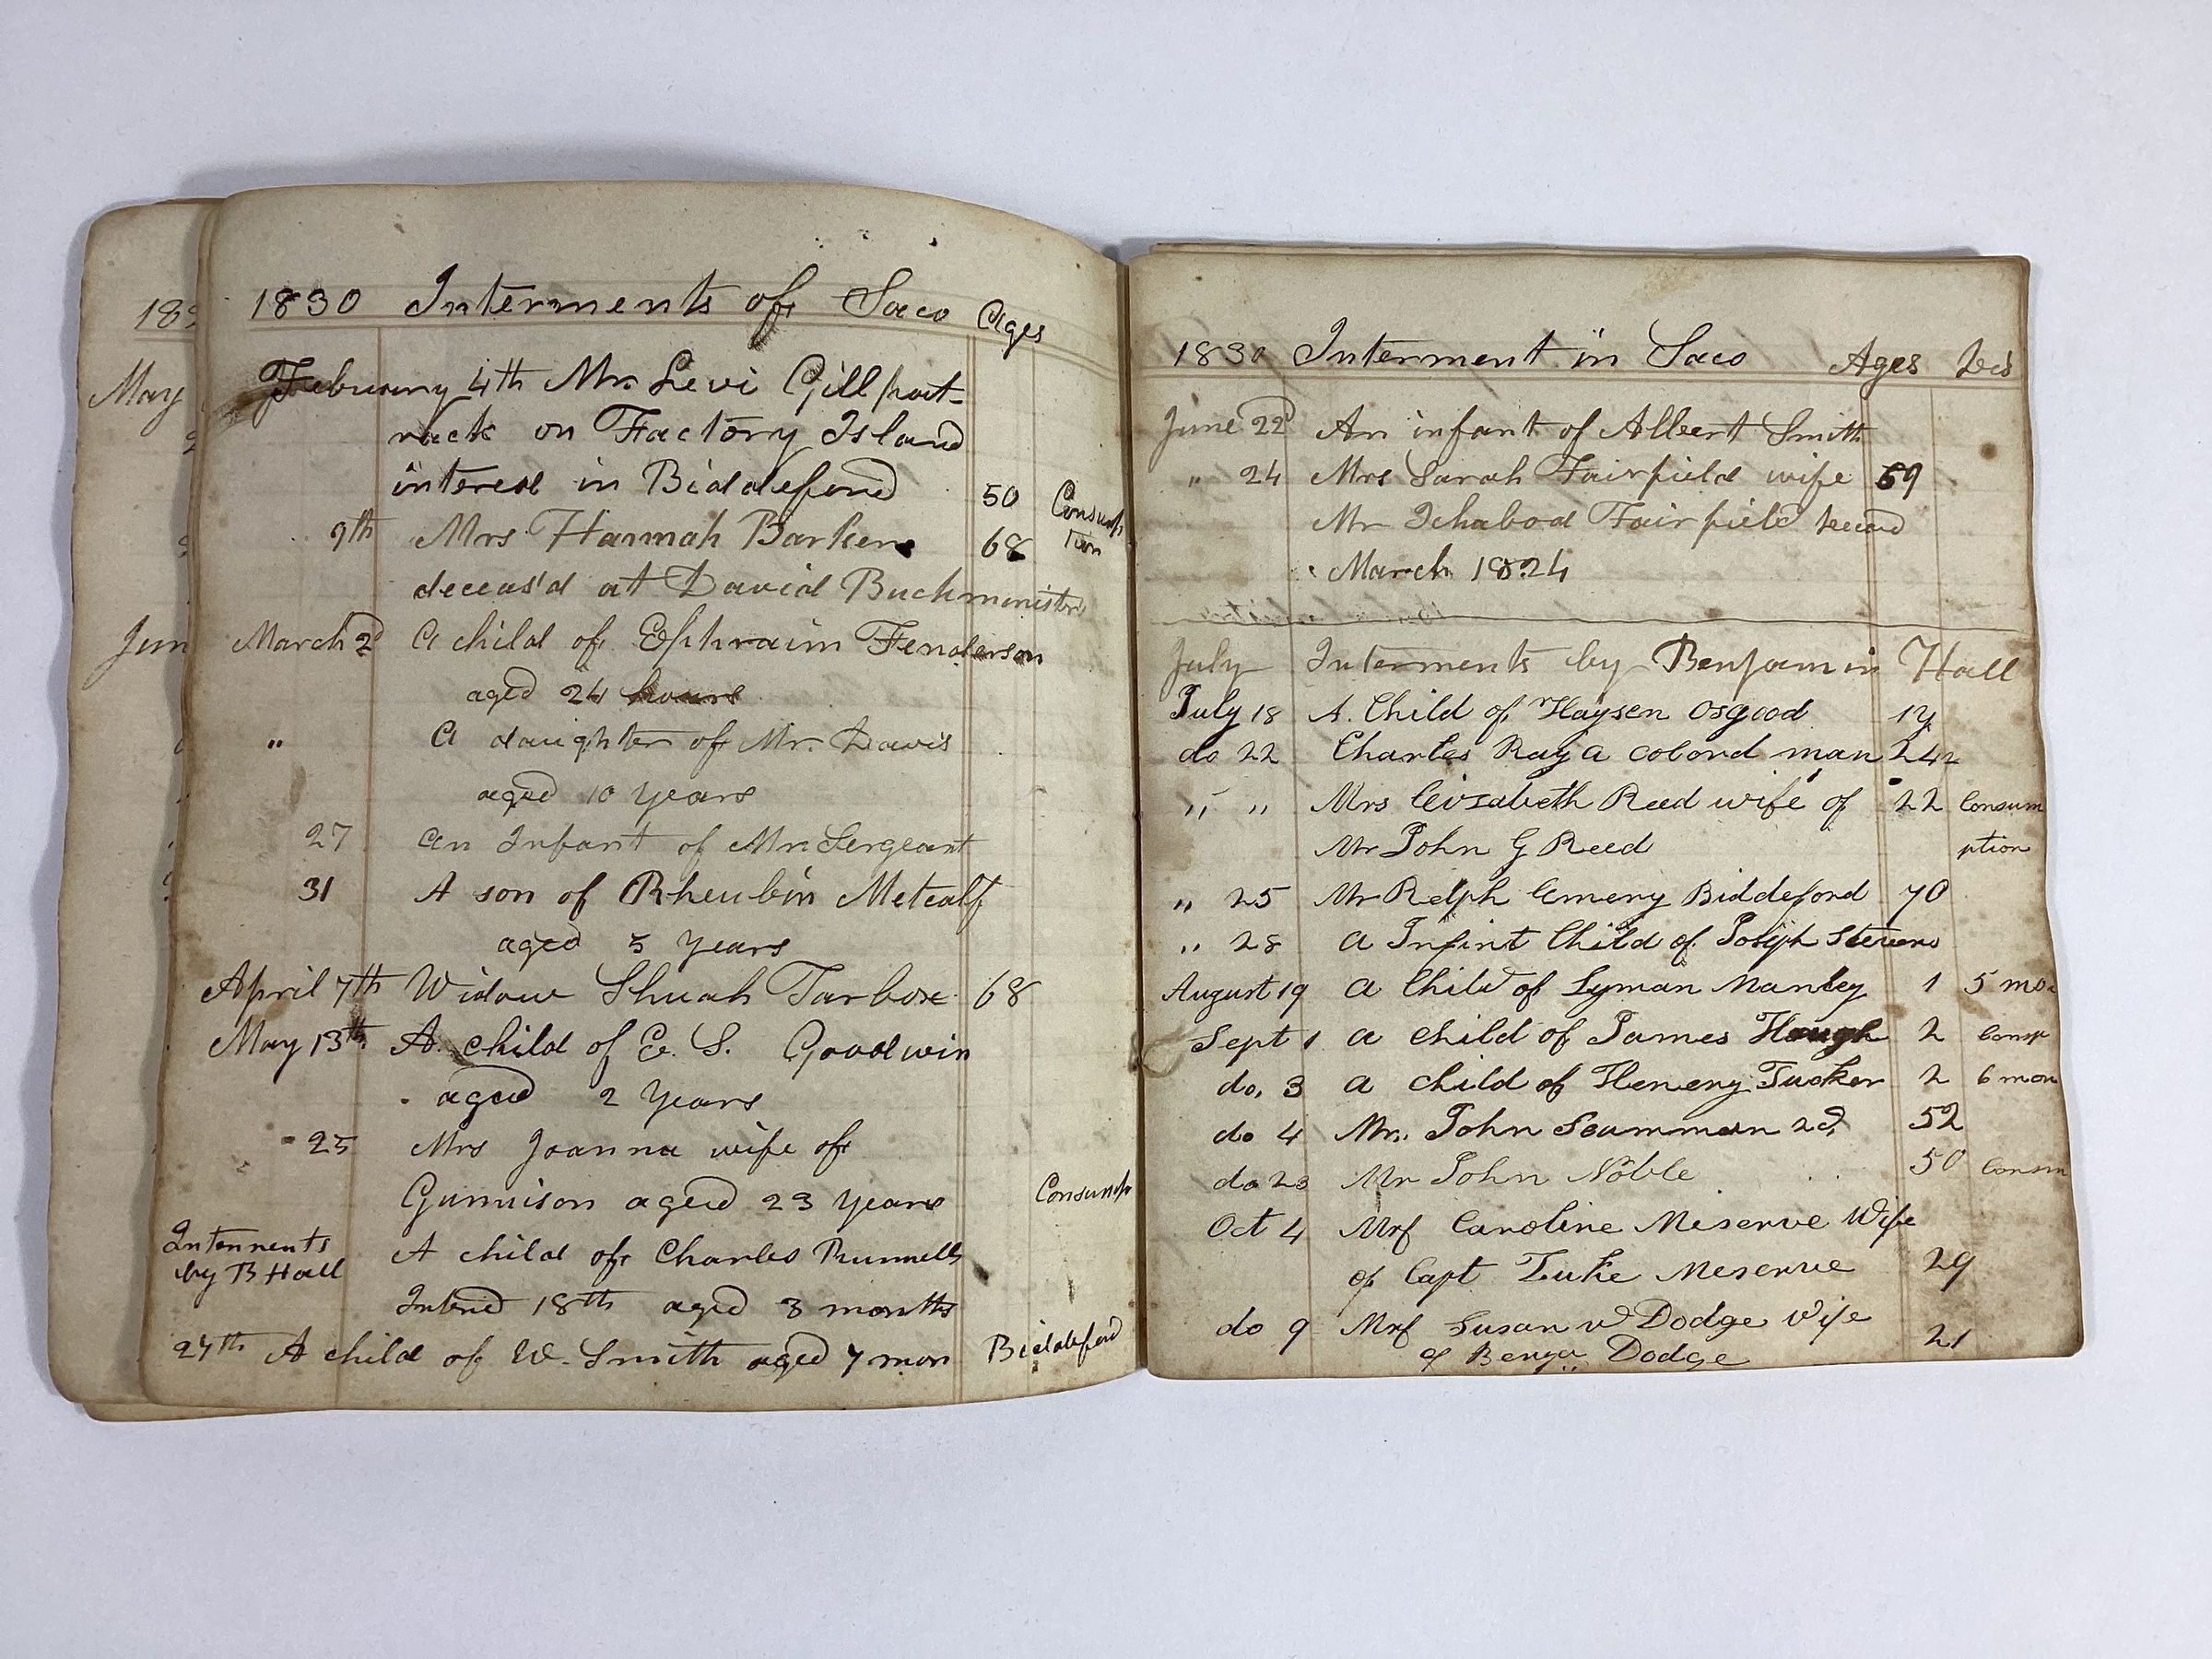 182
May
Jun
1830 Interments of Saco Ages
February 4th Mr. Levi Gillpat-
rack on Factory Island
intered in Biddeford 50 Consump
tion
9th Mrs Hannah Barker 68
deceas'd at David Buckminister
March 2d A child of Ephraim Fenderson
aged 24 hours
" A daughter of Mr. Davis
aged 10 years
27 An Infant of Mr. Sergeant
31 A son of Rheubin Metcalf
aged 5 years
April 7th Widow Shuah Tarbox 68
May 13th A child of E. S. Goodwin
aged 2 Years
25 Mrs Joanna wife of
Gunnison aged 23 years Consump
Interments A child of Charles Runnells
by B Hall
Intered 18th aged 3 months
27th A child of W. Smith aged 7 mon Biddeford
1830 Interment in Saco Ages
June 22d An infant of Albert Smith
" 24 Mrs Sarah Fairfield wife 69
Mr Ichabod Fairfield
March 1824
July Interments by Benjamin Hall
July 18 A. Child of Haysen Osgood 1y
do 22 Charles Ray a colord man 24
" " Mrs Elizabeth Reed wife of 22 Consum
Mr John G Reed ption
" 25 Mr Relph Emery Biddeford 70
" 28 a Infint Child of Josiph Stevens
August 19 a Child of Lyman Manley 1 5 mo
Sept 1 a child of James Hough 2 Consp
do. 3 a child of Henery Tucker 2 6 mon
do 4 Mr. John Scamman 2d, 52
do 23 Mr John Noble 50 Consm
Oct 4 Mrs Caroline Meserve Wife
of Capt Luke Meserve 29
do 9 Mrs Susan W Dodge Wife
of Benja Dodge 21